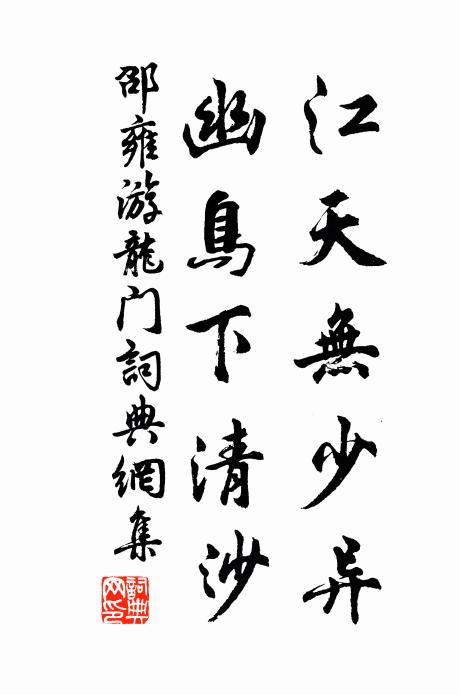 江天無少异
幽鳥下清沙
邵雍游龍门詞典網集
詞典网印